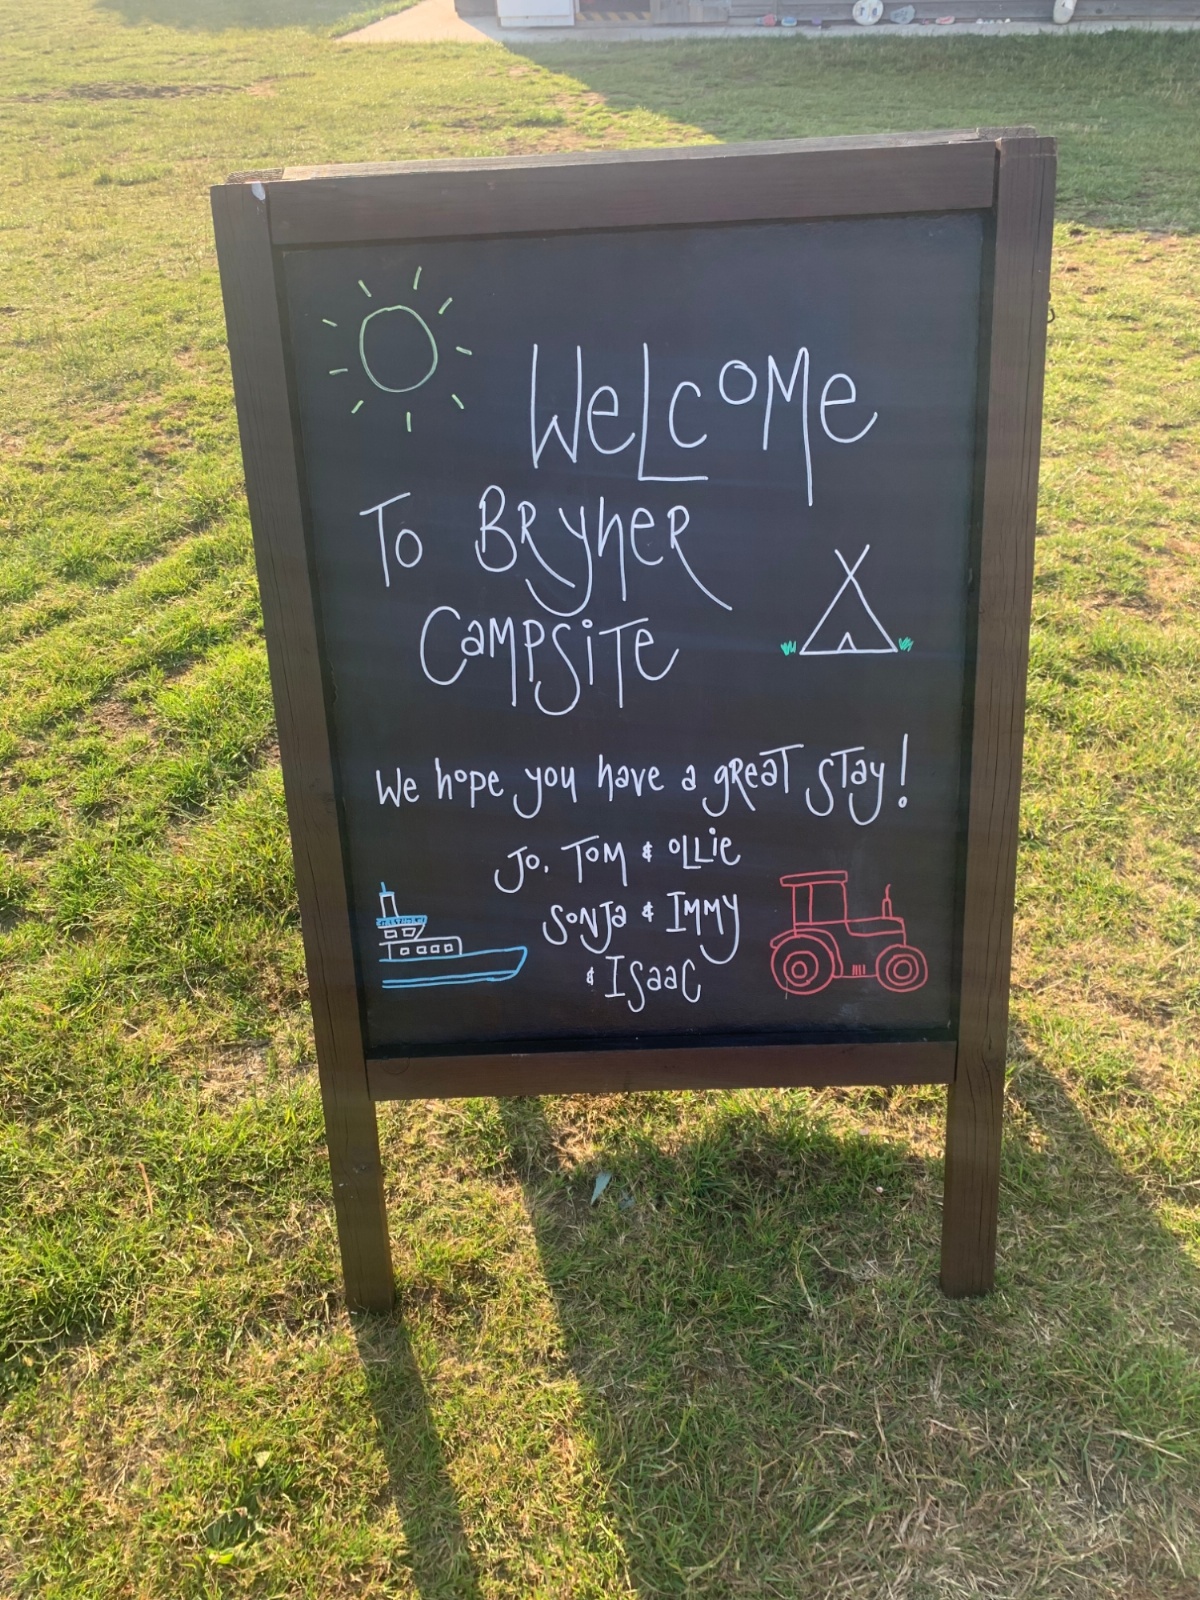 WeLcOMe
To BRyHeR
CaMPSiTe
We hope you have a gReaT STay!
Jo, ToM & oLLie
SoNJa & IMMy
& ISaaC